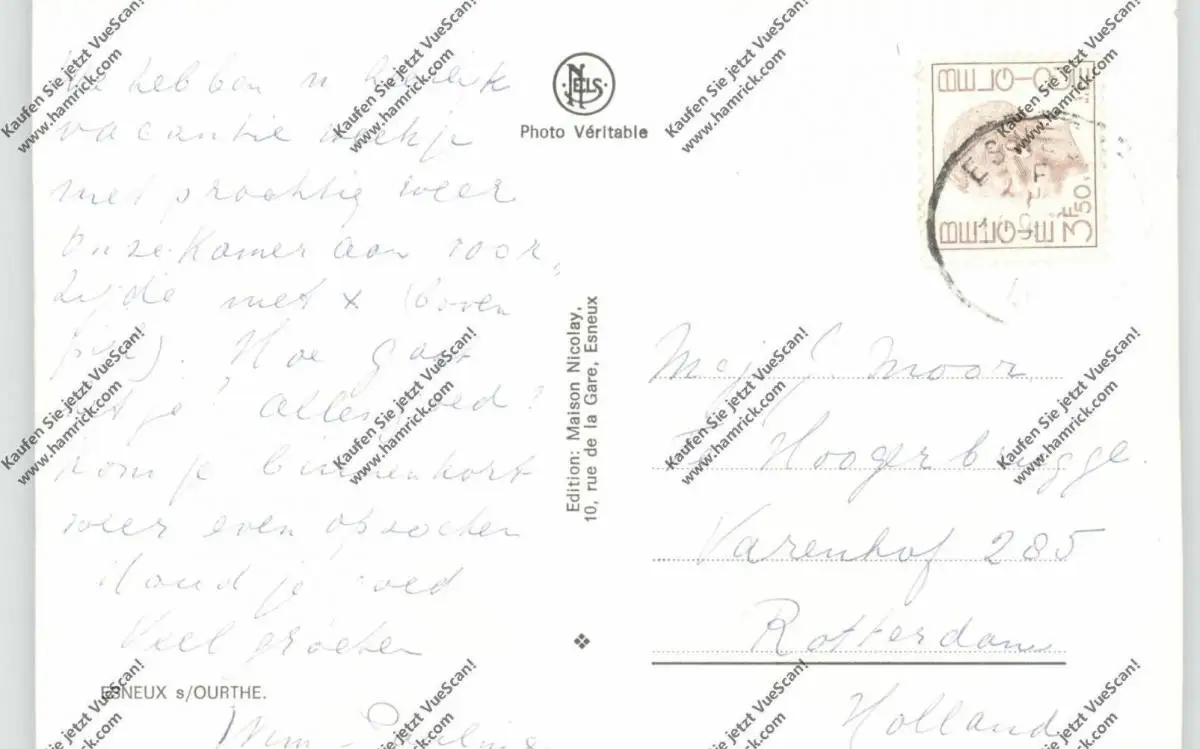 We hebben 'n heerlijk
vacantie weekje
met prachtig weer
Onze Kamer aan voor
zijde met x (boven
Hoe gaat
het je! Alles goed?
Kom je binnenkort
weer even opzoeken
Houd je goed
Veel groeten
Wim
ESNEUX s/OURTHE.
NELS
Photo Véritable
Edition: Maison Nicolay,
10, rue de la Gare, Esneux
BELGIQUE
BELGIË 3F50
Mej. J. Moor
Hoogerbrugge
Varenhof 285
Rotterdam
Holland
Kaufen Sie jetzt VueScan!
www.hamrick.com
Kaufen Sie jetzt VueScan!
www.hamrick.com
Kaufen Sie jetzt VueScan!
www.hamrick.com
Kaufen Sie jetzt VueScan!
www.hamrick.com
Kaufen Sie jetzt VueScan!
www.hamrick.com
Kaufen Sie jetzt VueScan!
www.hamrick.com
Kaufen Sie jetzt VueScan!
www.hamrick.com
Kaufen Sie jetzt VueScan!
www.hamrick.com
Kaufen Sie jetzt VueScan!
www.hamrick.com
Kaufen Sie jetzt VueScan!
www.hamrick.com
Kaufen Sie jetzt VueScan!
www.hamrick.com
Kaufen Sie jetzt VueScan!
www.hamrick.com